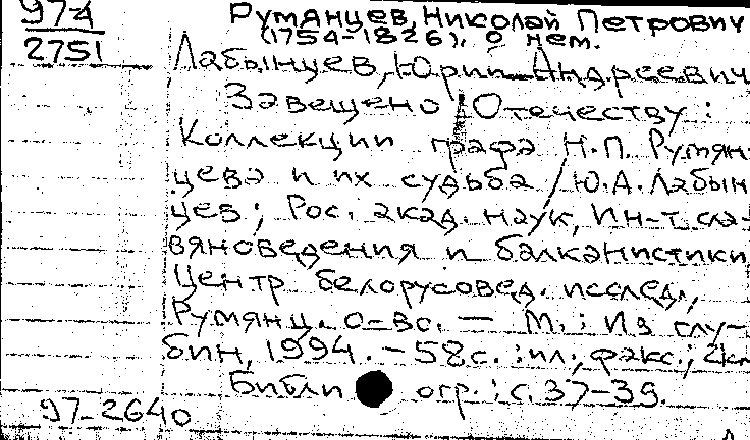 97-4
2751
Румянцев, Николай Петрович
(1754-1826), о нем.
Лабынцев, Юрий Андреевич
Завещено Отечеству:
Коллекции графа Н.П. Румян-
цева и их судьба / Ю.А. Лабын
цев; Рос. акад. наук, Ин-т сла-
вяноведения и балканистики,
Центр белорусовед. исслед.,
Румянц. о-во. — М.: Из глу-
бин, 1994. - 58 с.: ил., факс.;
Библиогр.: с. 37-39.
97-2640